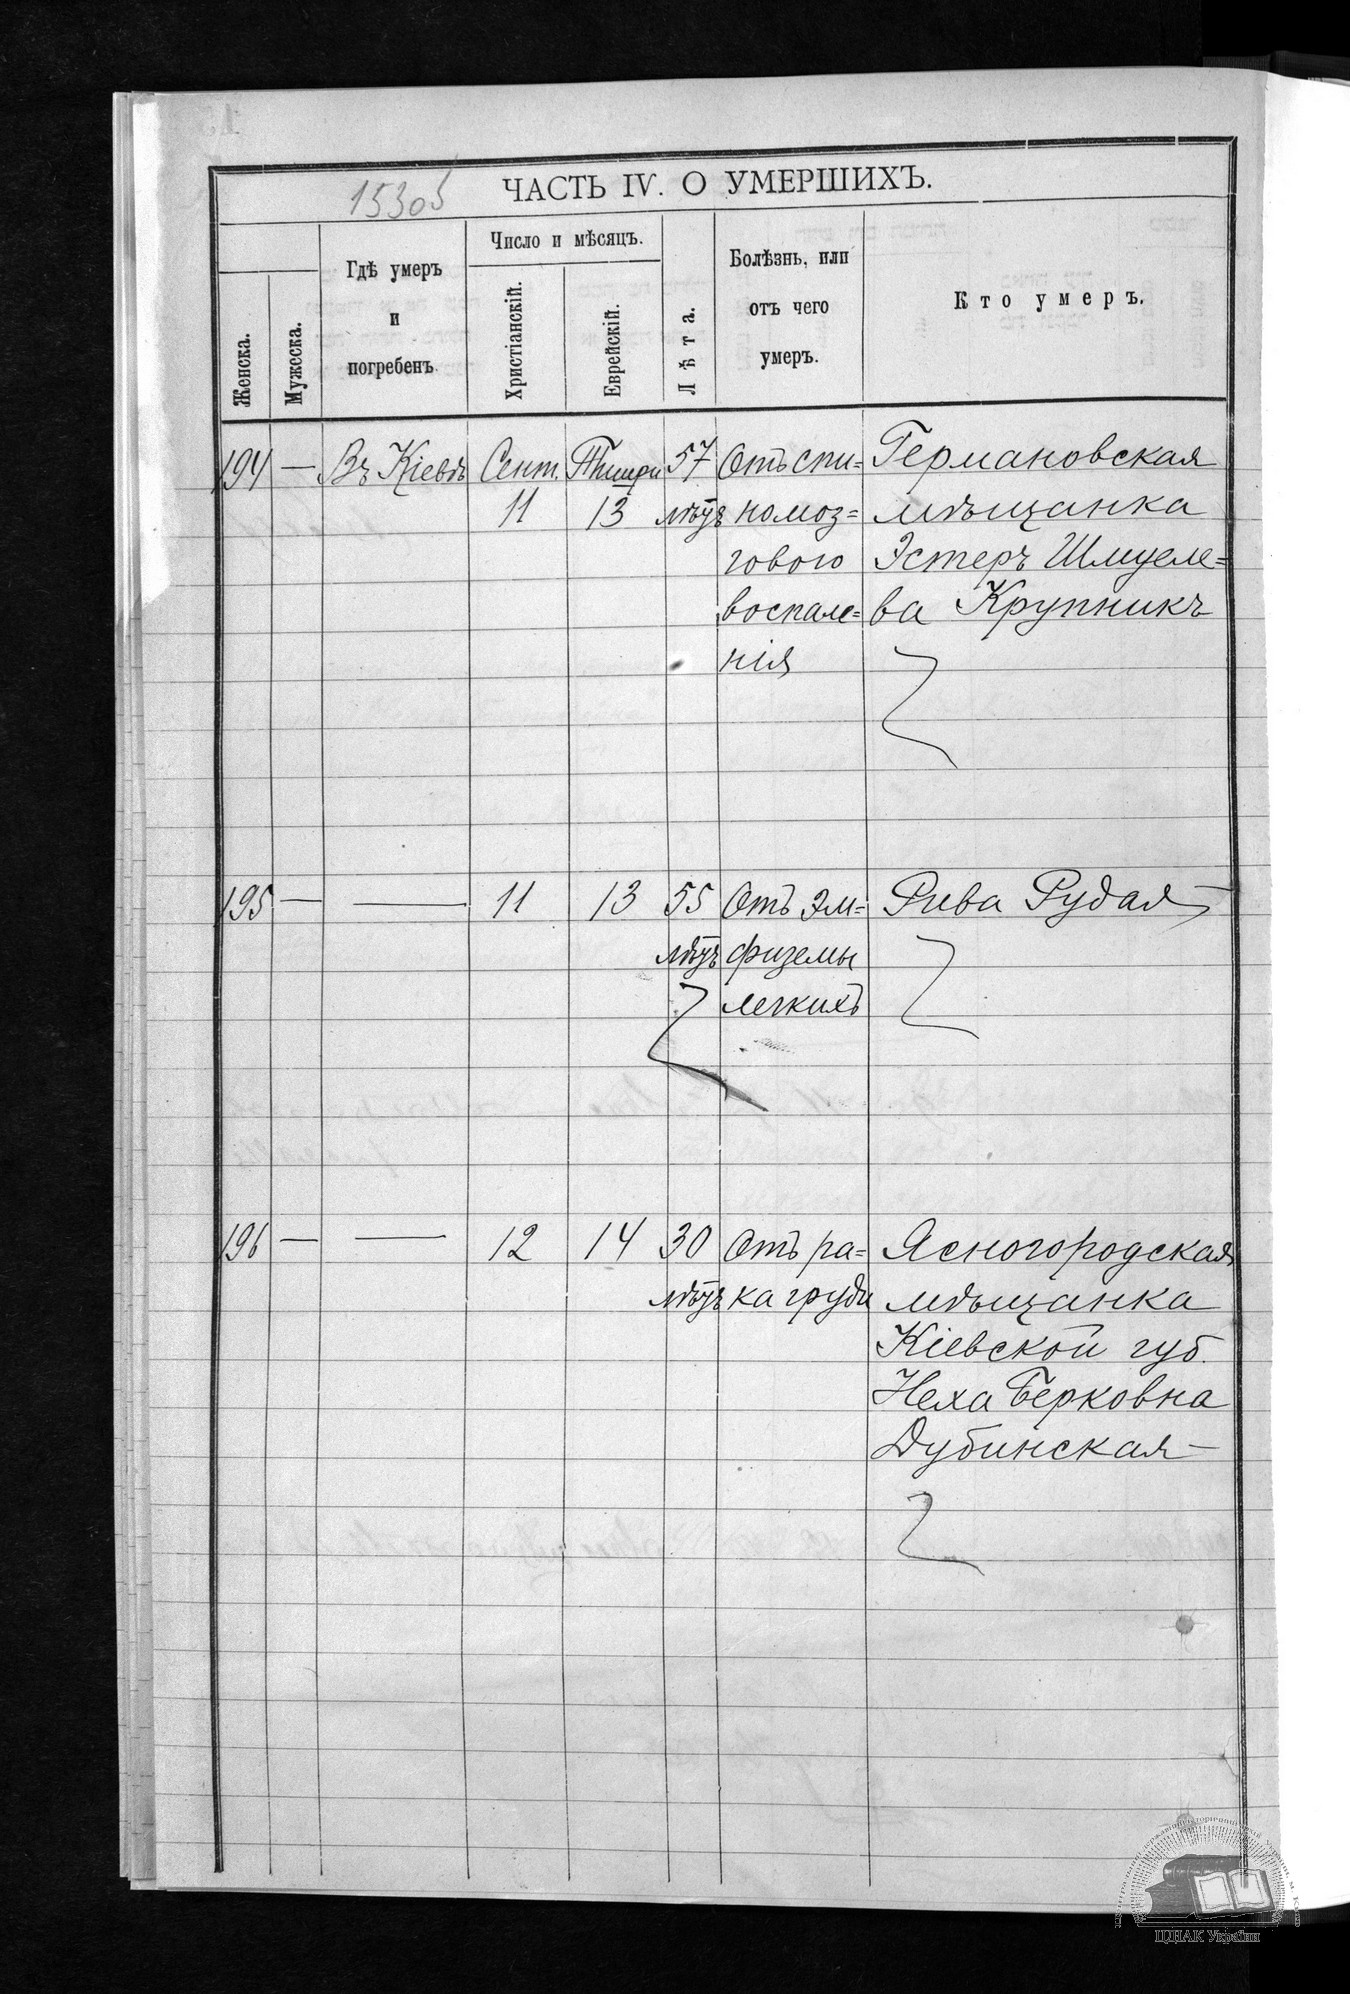 153об
ЧАСТЬ IV. О УМЕРШИХЪ.
Женска.
Мужеска.
Гдѣ умеръ
и
погребенъ
Число и мѣсяцъ.
Христіанскій.
Еврейскій.
Лѣта.
Болѣзнь, или
отъ чего
умеръ.
Кто умеръ.
194 — Въ Кіевѣ Сент. Тишри 57 Отъ спи= Германовская
11 13 лѣтъ номоз= мѣщанка
гового Эстеръ Шмулe=
воспале= ва Крупникъ
нія
195 — — 11 13 55 Отъ эм= Рива Рудая
лѣтъ физемы
легкихъ
196 — — 12 14 30 Отъ ра= Ясногородская
лѣтъ ка груди мѣщанка
Кіевской губ.
Неха Берковна
Дубинская —
ЦДІАК України